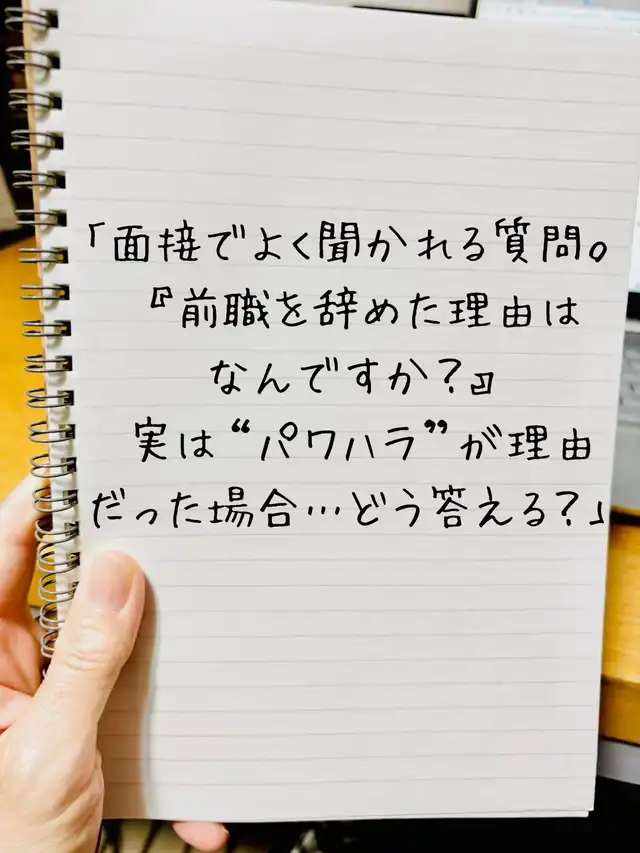 「面接でよく聞かれる質問。
『前職を辞めた理由は
なんですか？』
実は“パワハラ”が理由
だった場合…どう答える？」